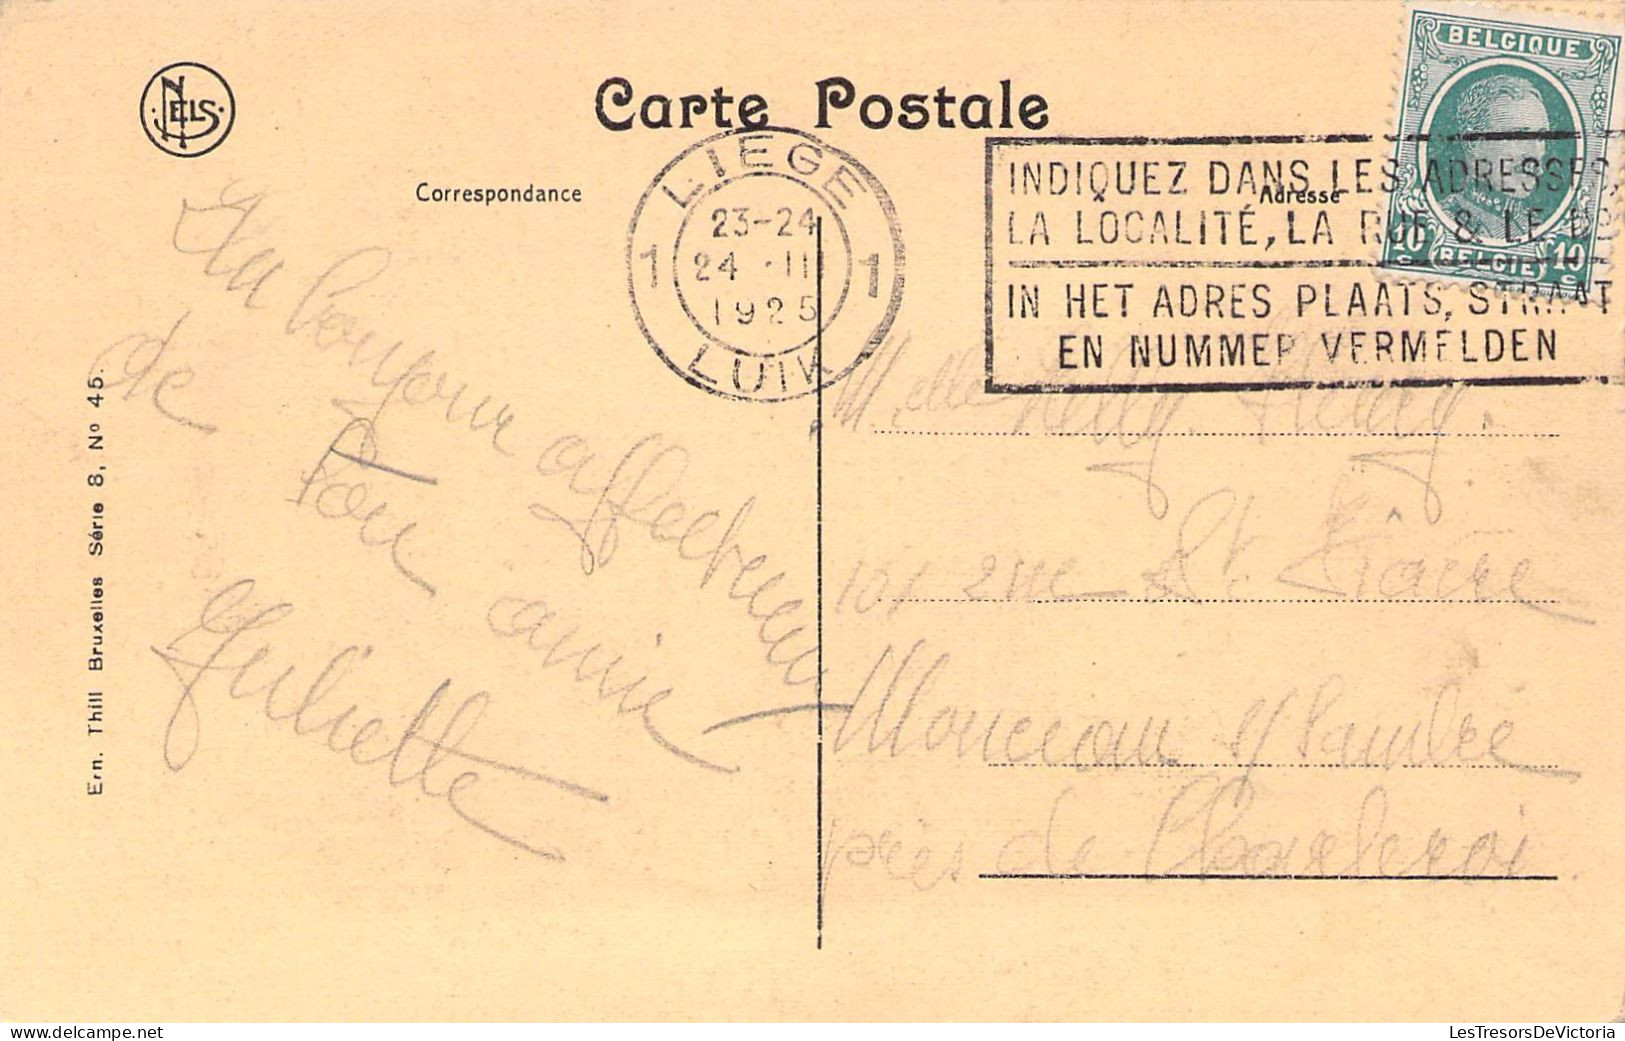 NELS
Carte Postale
Correspondance
Adresse
BELGIQUE
10 c (BELGIE) 10
LIEGE
1 23-24 1
24 III
1925
LUIK
INDIQUEZ DANS LES ADRESSES,
LA LOCALITÉ, LA RUE & LE No
IN HET ADRES PLAATS, STRAAT
EN NUMMER VERMELDEN
Un bonjour affectueux
de ton amie
Juliette
Melle Nelly
101 rue St.
Monceau s/Sambre
près de Charleroi.
Ern. Thill Bruxelles Série 8, No 45.
LesTresorsDeVictoria